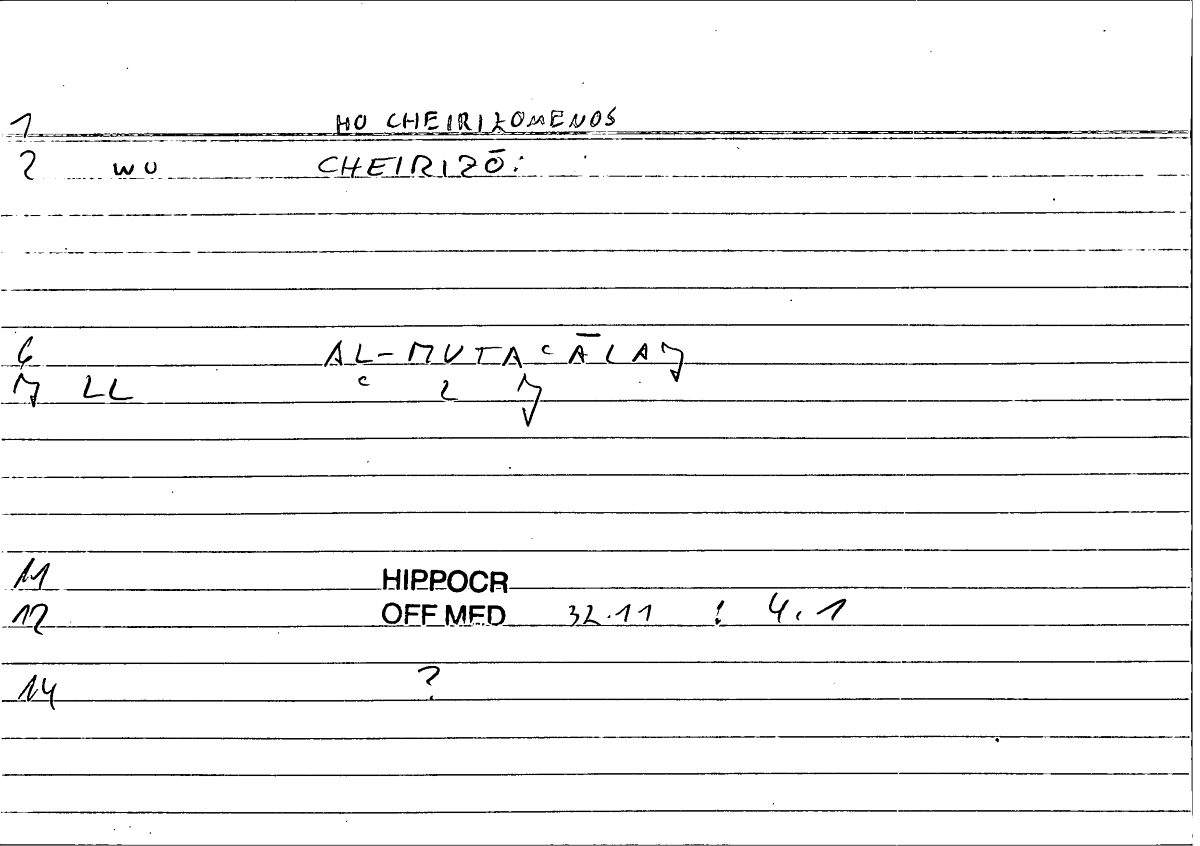 1 HO CHEIRIZOMENOS
2 WO CHEIRIZŌ:
6 AL-MUTAʿĀLAǧ
7 LL ʿ L ǧ
11 HIPPOCR
12 OFF MED 32.11 : 4,1
14 ?